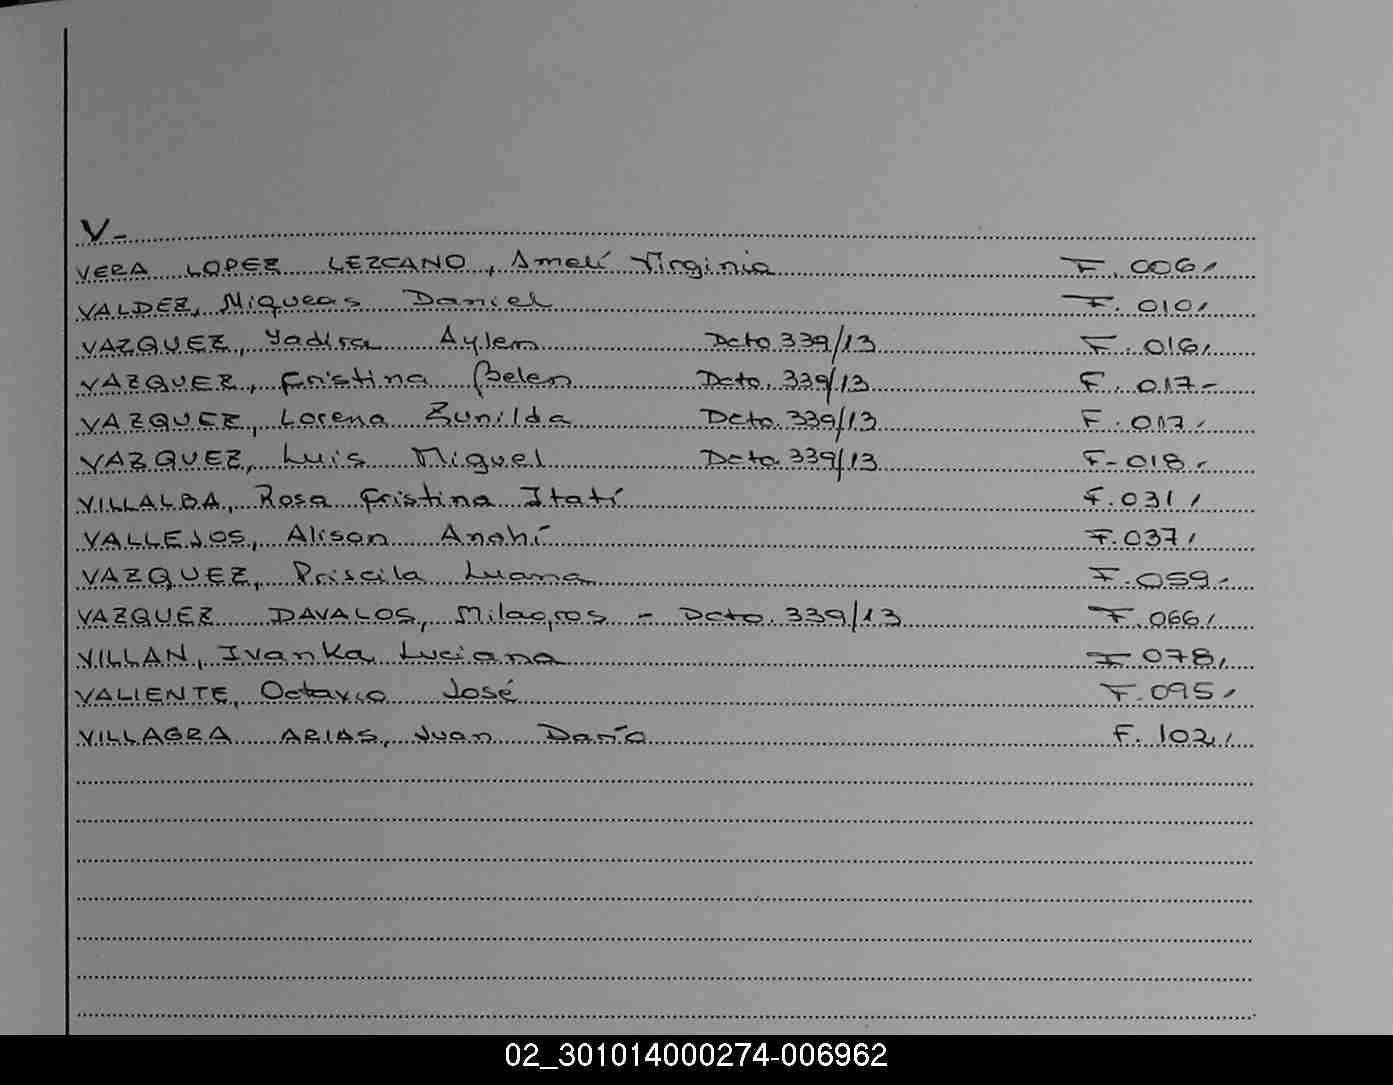 V-
VERA LOPEZ LEZCANO, Amelí Virginia F. 006,
VALDEZ, Miqueas Daniel F. 010,
VAZQUEZ, Yadira Aylen Dcto 339/13 F. 016,
VAZQUEZ, Cristina Belen Dcto. 339/13 F. 017-
VAZQUEZ, Lorena Zunilda Dcto. 339/13 F. 017,
VAZQUEZ, Luis Miguel Dcto. 339/13 F-018,
VILLALBA, Rosa Cristina Itatí F. 031,
VALLEJOS, Alison Anahí F. 037,
VAZQUEZ, Priscila Luana F. 059-
VAZQUEZ DAVALOS, Milagros - Dcto. 339/13 F. 066,
VILLAN, Ivanka Luciana F 078,
VALIENTE, Octavio José F. 095,
VILLAGRA ARIAS, Juan Darío F. 102,
02_301014000274-006962